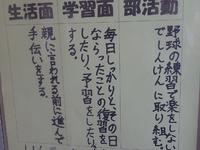 部活動
野球の練習で楽をしない
でしんけんに取り組む。
学習面
毎日しっかりと、その日
ならったことの復習を
したり、予習をしたり
する。
生活面
親に言われる前に進んで
手伝いをする。